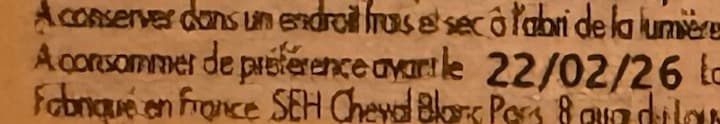 A conserver dans un endroit frais et sec à l'abri de la lumière
A consommer de préférence avant le 22/02/26
Fabriqué en France SEH Cheval Blanc Paris 8 quai du